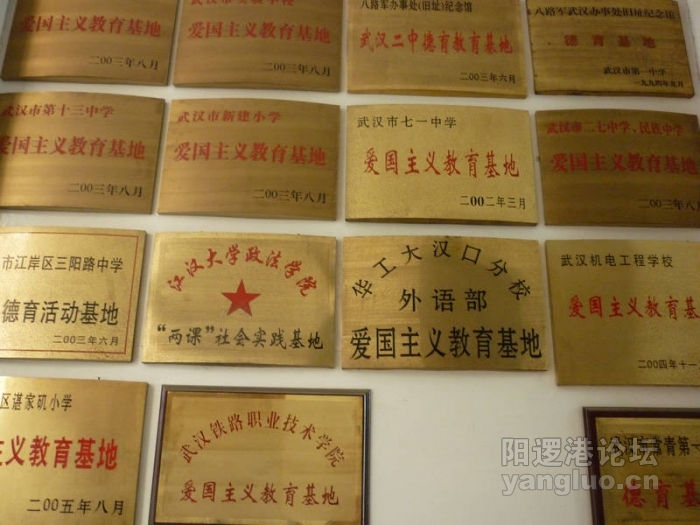 爱国主义教育基地
二00三年八月
爱国主义教育基地
二00三年八月
八路军办事处(旧址)纪念馆
武汉二中德育教育基地
二00三年六月
八路军武汉办事处旧址纪念馆
德育基地
武汉市第一中学
一九九四年五月
武汉市第十三中学
爱国主义教育基地
二00三年八月
武汉市新建小学
爱国主义教育基地
二00三年八月
武汉市七一中学
爱国主义教育基地
二00二年三月
武汉市二七中学、民族中学
爱国主义教育基地
二00三年八月
市江岸区三阳路中学
德育活动基地
二00三年六月
江汉大学政法学院
“两课”社会实践基地
华工大汉口分校
外语部
爱国主义教育基地
武汉机电工程学校
爱国主义教育基
二00四年十一
区谌家矶小学
主义教育基地
二00五年八月
武汉铁路职业技术学院
爱国主义教育基地
常青第一
德育基
阳逻港论坛
yangluo.cn